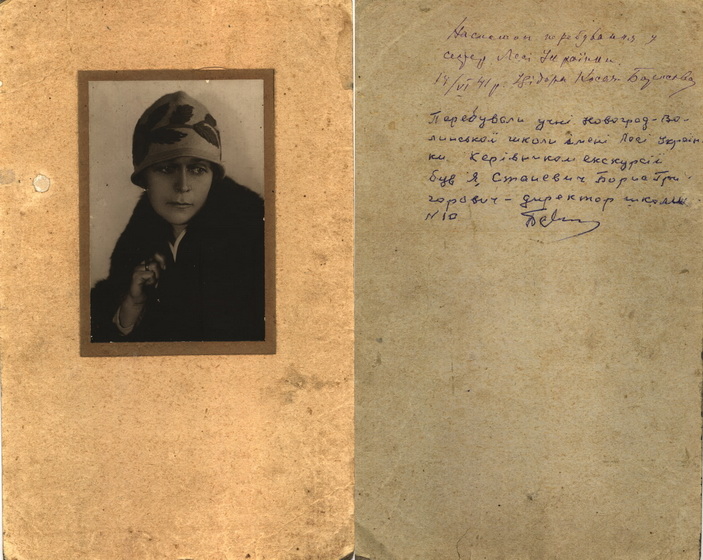 перебування у
Лесі Українки.
Ізідора Косач Борисова
Перебували учні Новоград-Во-
линської школи імені Лесі Українки
ки. Керівником екскурсій
був Я Станевич Борис Гри-
горович – директор школи
№10